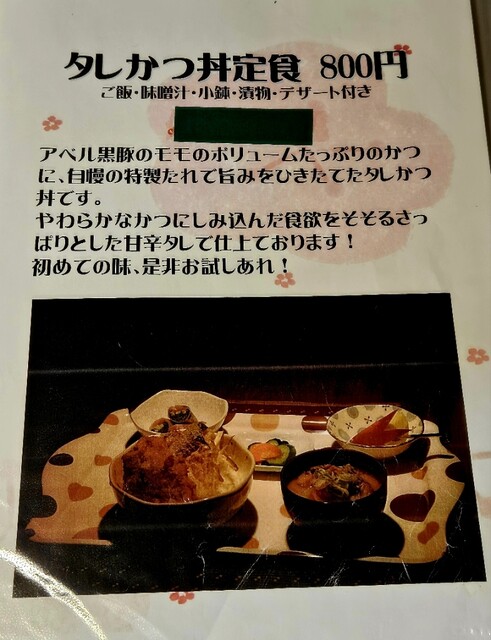 タレかつ丼定食 800円
ご飯・味噌汁・小鉢・漬物・デザート付き
アベル黒豚のモモのボリュームたっぷりのかつ
に、自慢の特製たれで旨みをひきたてたタレかつ
丼です。
やわらかなかつにしみ込んだ食欲をそそるさっ
ぱりとした甘辛タレで仕上ております！
初めての味、是非お試しあれ！